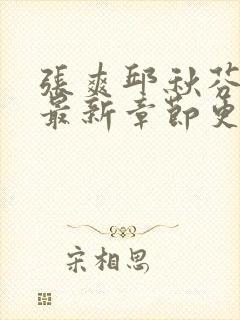 張爽邱秋芬
最新章節更
宋相思